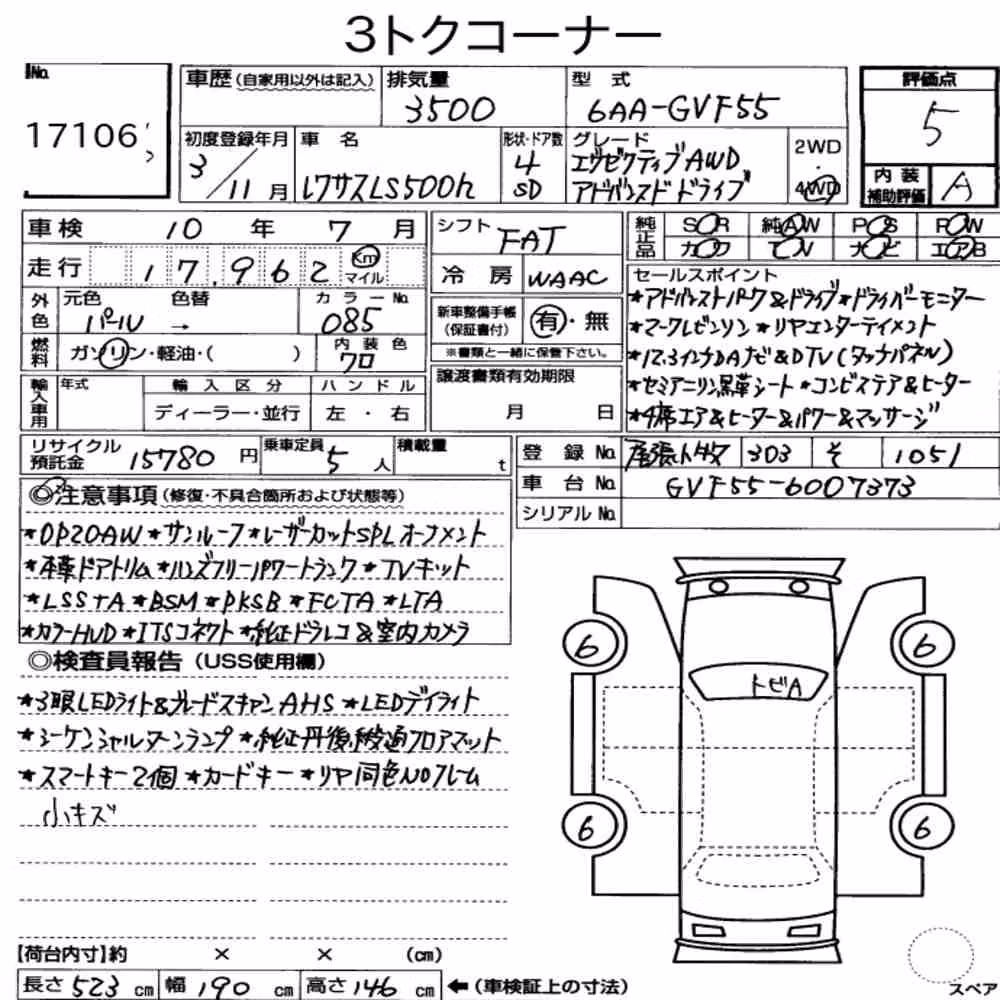 3トクコーナー
No.
17106
車歴(自家用以外は記入)
排気量
3500
型式
6AA-GVF55
評価点
5
初度登録年月
3/11月
車名
レクサスLS500h
形状・ドア数
4
SD
グレード
エグゼクティブAWD
アドバンスドドライブ
2WD
・
4WD
内装
補助評価
A
車検 10年 7月
シフト
FAT
純正品
SR 純AW PS PW
カワ TV ナビ エアB
走行 17,962 Km
マイル
冷房 WAAC
セールスポイント
★アドバンストパーク&ドライブ★ドライバーモニター
★マークレビンソン★リヤエンターテイメント
★12.3インチDAナビ&DTV(タッチパネル)
★セミアニリン黒革シート★コンビステア&ヒーター
★4席エア&ヒーター&パワー&マッサージ
外色
元色 色替
パール →
カラーNo.
085
新車整備手帳
(保証書付)
有・無
※書類と一緒に保管下さい。
燃料
ガソリン・軽油・( )
内装色
クロ
譲渡書類有効期限
月 日
輸入車用
年式
輸入区分
ディーラー・並行
ハンドル
左・右
リサイクル
預託金
15780円
乗車定員
5人
積載量
t
登録No. 尾張小牧 303 そ 1051
車台No. GVF55-6007373
シリアルNo.
◎注意事項(修復・不具合箇所および状態等)
★OP20AW★サンルーフ★レーザーカットSPLオーナメント
★本革ドアトリム★ハンズフリーパワートランク★TVキット
★LSS+A★BSM★PKSB★FCTA★LTA
★カラーHUD★ITSコネクト★純正ドラレコ&室内カメラ
◎検査員報告(USS使用欄)
★3眼LEDライト&ブレードスキャンAHS★LEDデイライト
★シーケンシャルターンランプ★純正丹後綾通フロアマット
★スマートキー2個★カードキー★リヤ同色NOフレーム
小キズ
6
6
トビA
6
6
【荷台内寸】約 × × (cm)
長さ523cm 幅190cm 高さ146cm ←(車検証上の寸法)
スペア